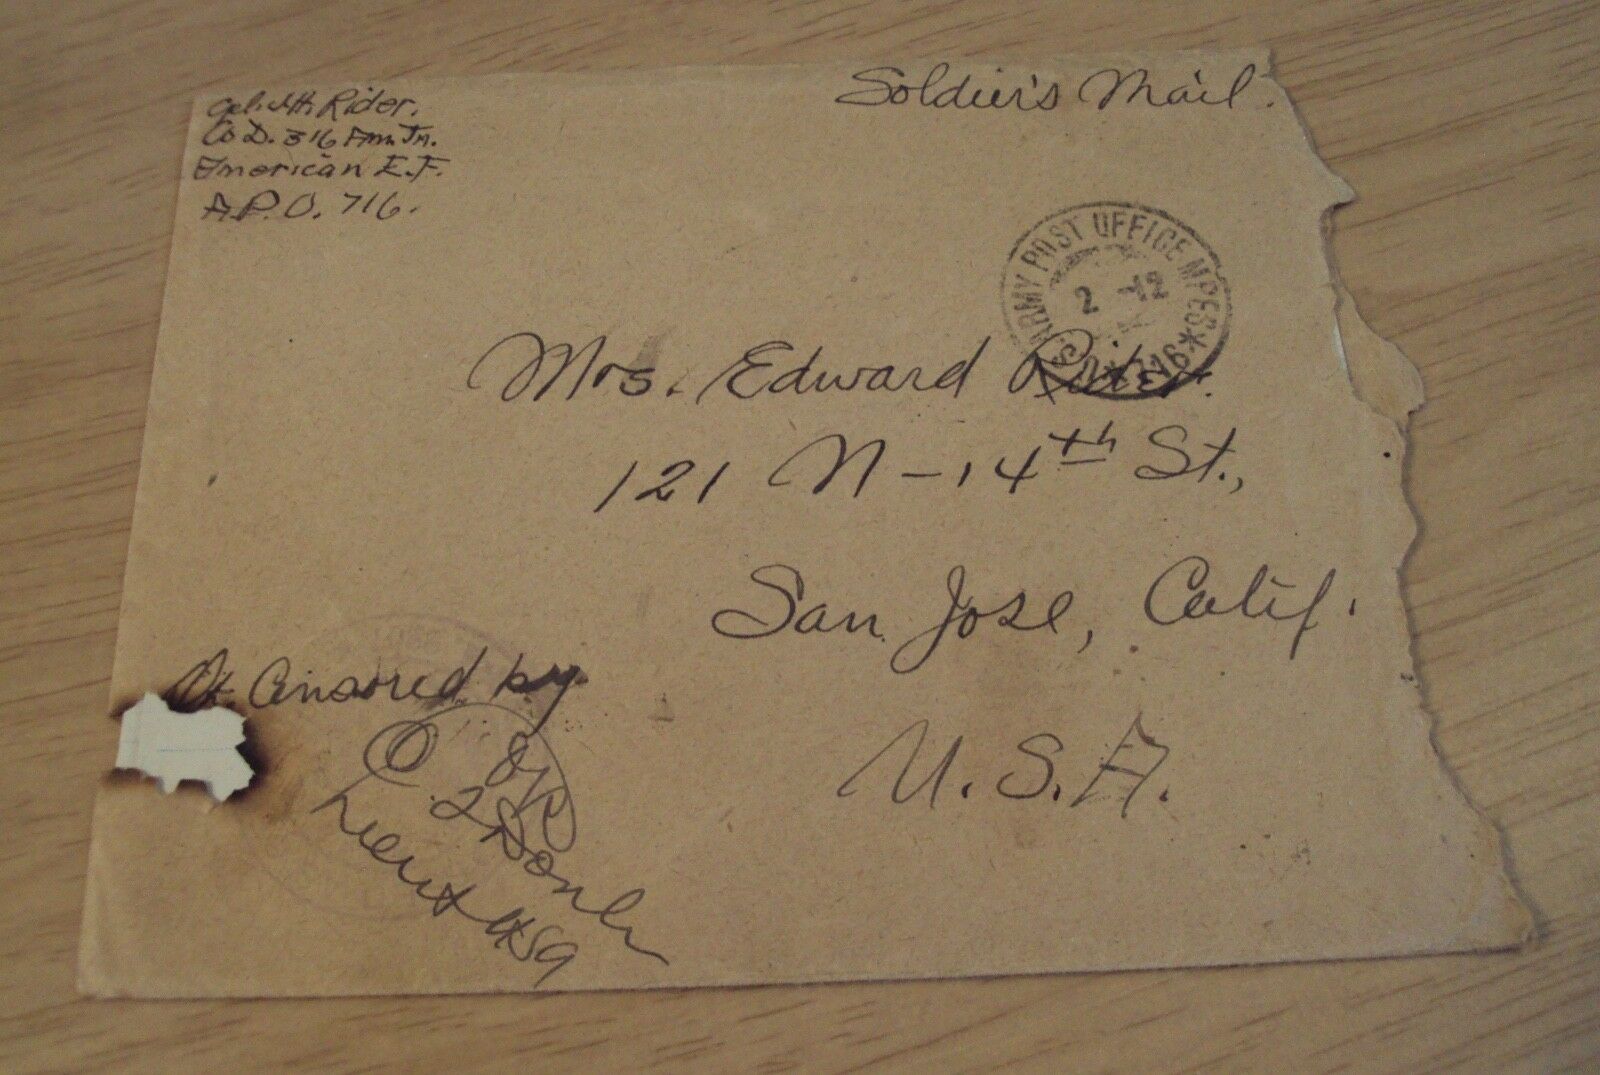 Rider.
Co D. 316 Am. Tn.
American E.F.
A.P.O. 716.
Soldier's Mail.
ARMY POST OFFICE MPES * 716 *
2 -12
Mrs. Edward Rider.
121 N-14th St.,
San Jose, Calif.
U.S.A.
Censored by
Lieut USA